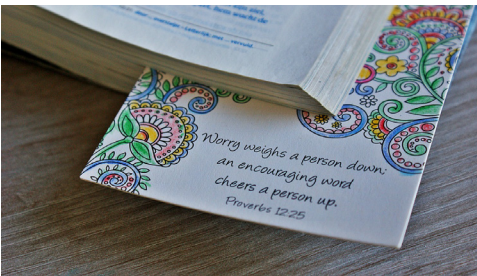 Worry weighs a person down;
an encouraging word
cheers a person up.
Proverbs 12:25